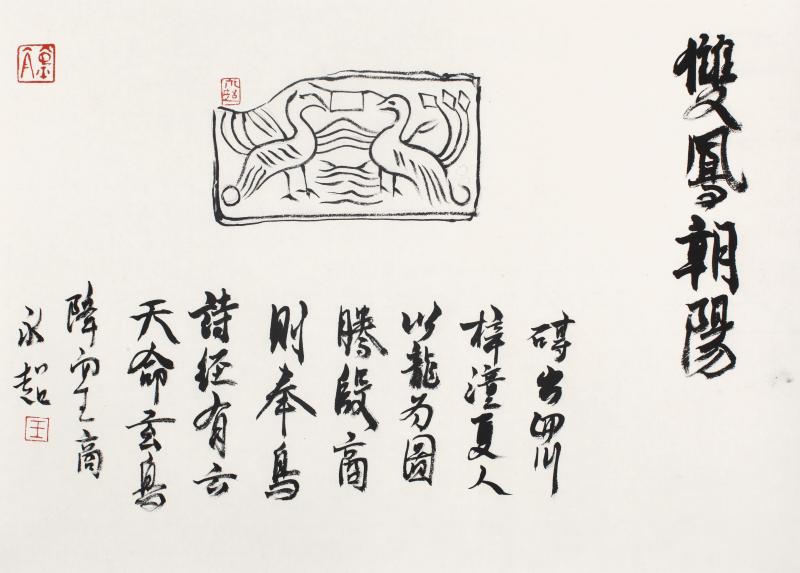 雙鳳朝陽
磚出四川
梓潼夏人
以龍為圖
騰殷商
則奉鳥
詩經有云
天命玄鳥
降而生商
永超
王